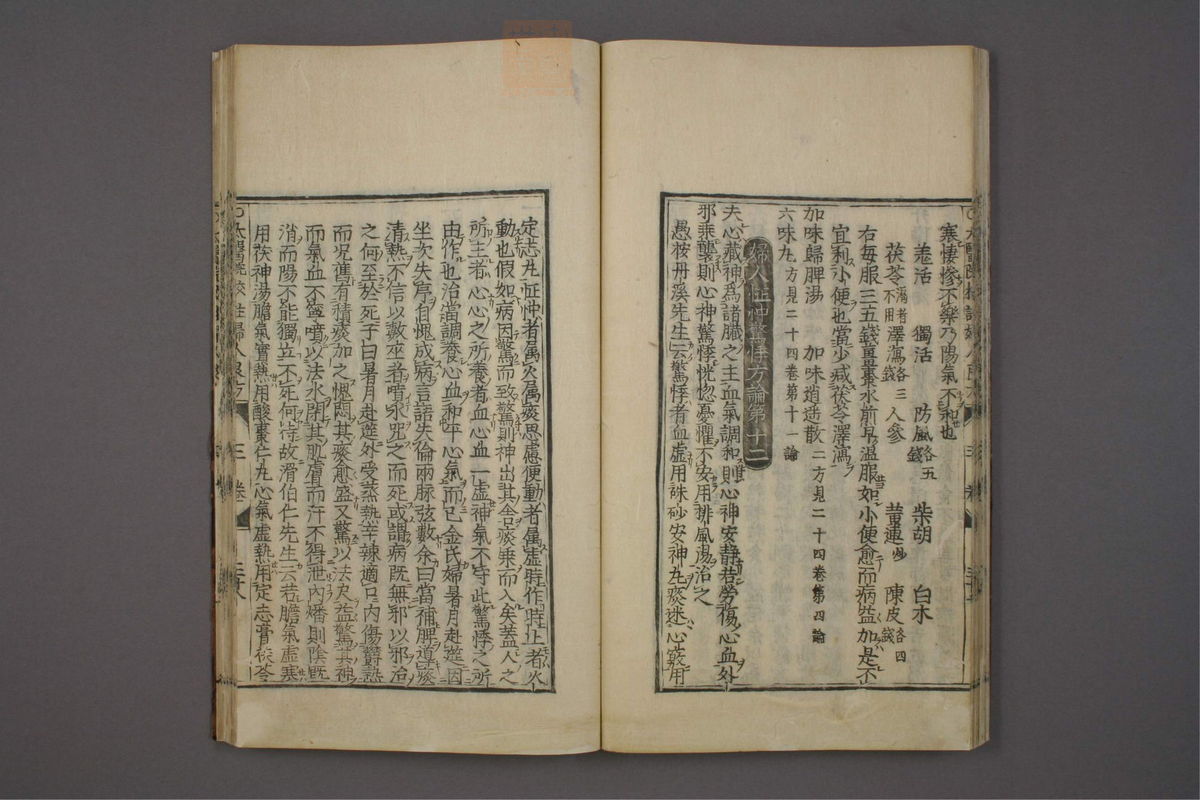 寒悽慘不樂乃陽氣不和也
羗活 獨活 防風各五錢 柴胡 白朮
茯苓渴者不用 澤瀉各三錢 人參 黃連炒 陳皮各四錢
右每服三五錢薑棗水煎早溫服如小便愈而病益加是不
宜利小便也當少減茯苓澤瀉
加味歸脾湯 加味逍遙散二方見二十四卷第四論
六味丸方見二十四卷第十一論
婦人怔忡驚悸方論第十二
夫心藏神爲諸臟之主血氣調和則心神安靜若勞傷心血外
邪乘襲則心神驚悸恍惚憂懼不安用排風湯治之
愚按丹溪先生云驚悸者血虛用硃砂安神丸痰迷心竅用
定志丸怔忡者属火属痰思慮便動者属虛時作時止者火
動也假如病因驚而致驚則神出其舍痰乘而入矣蓋人之
所主者心心之所養者血心血一虛神氣不守此驚悸之所
由作也治當調養心血和平心氣而已金氏婦暑月赴筵因
坐次失序自愧成病言語失倫兩脉弦數余曰當補脾導痰
清熱不信以數巫者噴水咒之而死或謂病既無邪以邪治
之何至於死予曰暑月赴筵外受蒸熱辛辣適口内傷鬱熱
而况舊有積痰加之愧悶其痰愈盛又驚以法尺益驚其神
而氣血不寧噴以法水閉其肌膚而汗不得泄内燔則陰既
消而陽不能獨立不死何待故滑伯仁先生云若膽氣虛寒
用茯神湯膽氣實熱用酸棗仁丸心氣虛熱用定志膏茯苓
〇太醫院校註婦人良方 三卷